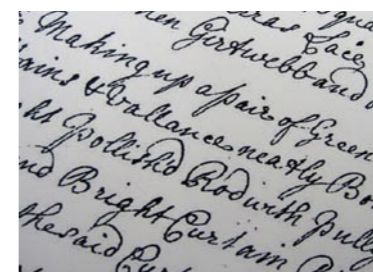 Lace
hen Girtwebb and
Making up a pair of Green
ains & Vallance neatly Bo
ht Pollish'd Rod with Pully
nd Bright Curtain
the said Curt